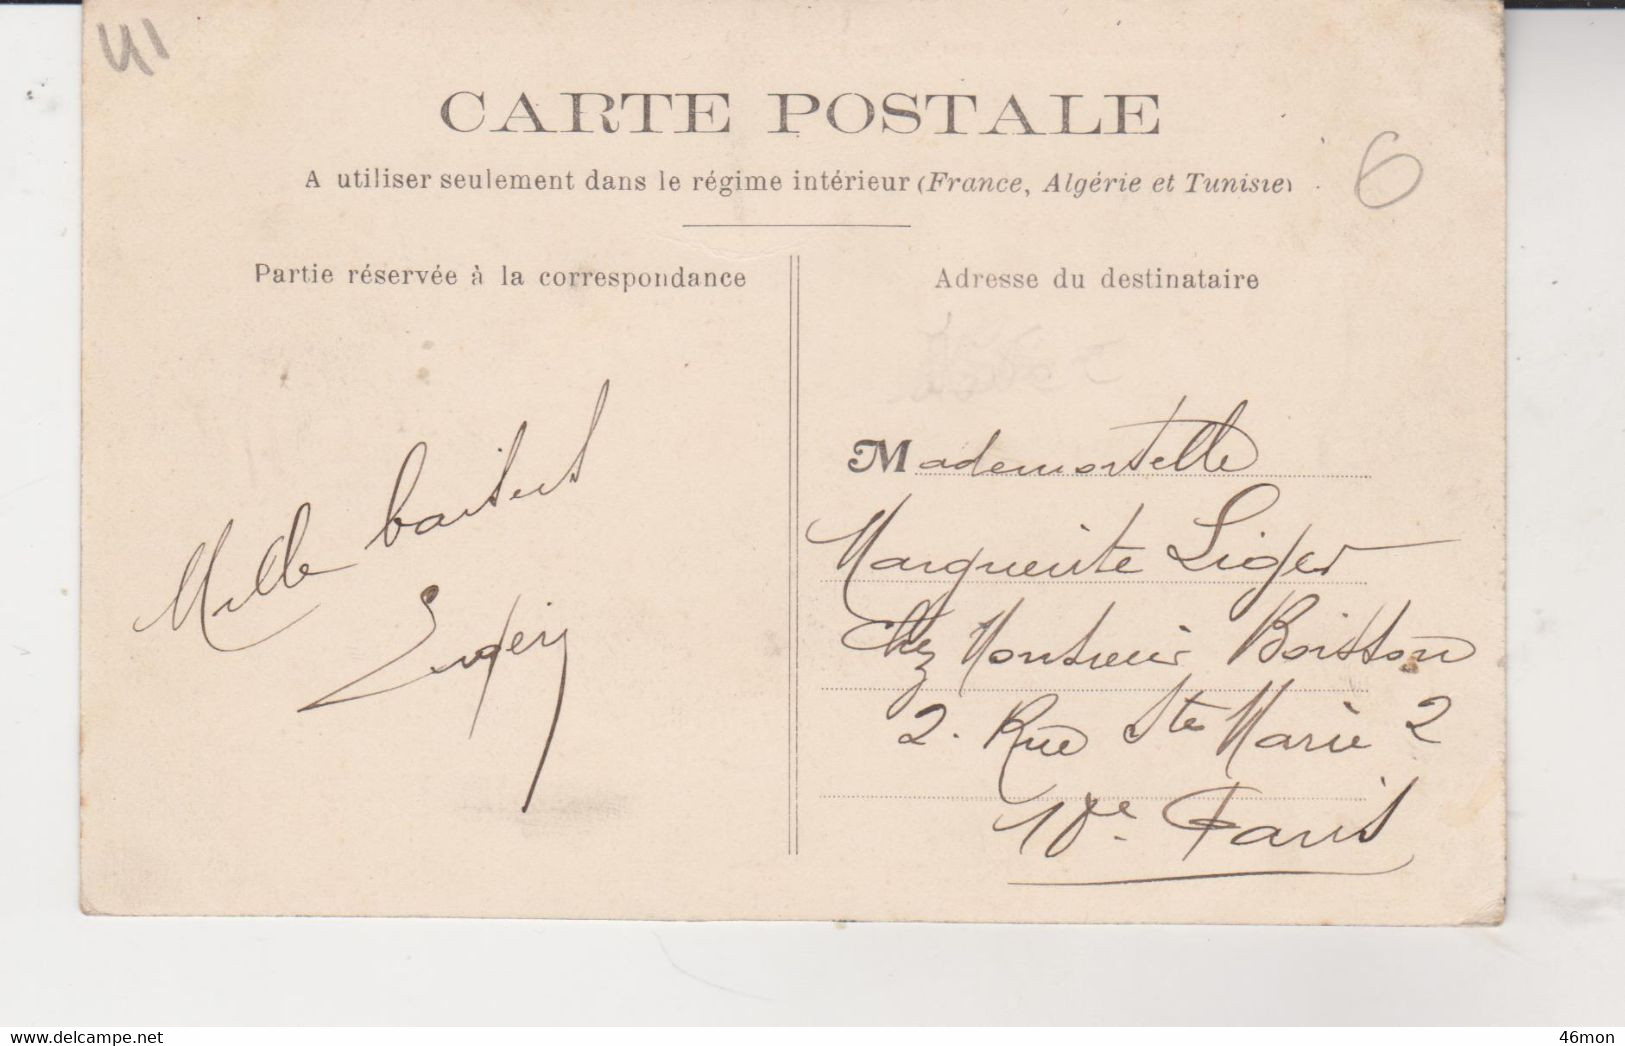 41
CARTE POSTALE
A utiliser seulement dans le régime intérieur (France, Algérie et Tunisie)
6
Partie réservée à la correspondance
Mille baisers
Adresse du destinataire
Mademoiselle
Marguerite Liger
Chez Monsieur Boisson
2. Rue Ste Marie 2
18e. Paris
www.delcampe.net
46mon